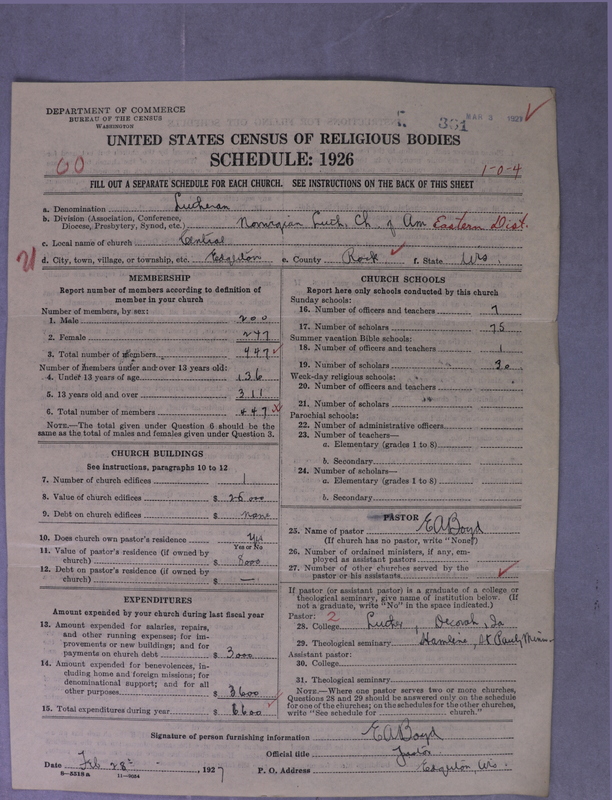 DEPARTMENT OF COMMERCE
BUREAU OF THE CENSUS
WASHINGTON
361 MAR 3 1927
UNITED STATES CENSUS OF RELIGIOUS BODIES
SCHEDULE: 1926
60
1-0-4
FILL OUT A SEPARATE SCHEDULE FOR EACH CHURCH. SEE INSTRUCTIONS ON THE BACK OF THIS SHEET
a. Denomination Lutheran
b. Division (Association, Conference, Diocese, Presbytery, Synod, etc.) Norwegian Luth. Ch. of Am Eastern Dist.
c. Local name of church Central
d. City, town, village, or township, etc. Edgerton e. County Rock f. State Wis.
MEMBERSHIP
Report number of members according to definition of
member in your church
Number of members, by sex:
1. Male 200
2. Female 247
3. Total number of members 447
Number of members under and over 13 years old:
4. Under 13 years of age 136
5. 13 years old and over 311
6. Total number of members 447
NOTE.—The total given under Question 6 should be the
same as the total of males and females given under Question 3.
CHURCH BUILDINGS
See instructions, paragraphs 10 to 12
7. Number of church edifices 1
8. Value of church edifices $ 25000
9. Debt on church edifices $ none
10. Does church own pastor's residence? Yes
Yes or No
11. Value of pastor's residence (if owned by
church) $ 8000
12. Debt on pastor's residence (if owned by
church) $ —
EXPENDITURES
Amount expended by your church during last fiscal year
13. Amount expended for salaries, repairs,
and other running expenses; for im-
provements or new buildings; and for
payments on church debt $ 3000
14. Amount expended for benevolences, in-
cluding home and foreign missions; for
denominational support; and for all
other purposes $ 3600
15. Total expenditures during year $ 6600
CHURCH SCHOOLS
Report here only schools conducted by this church
Sunday schools:
16. Number of officers and teachers 7
17. Number of scholars 75
Summer vacation Bible schools:
18. Number of officers and teachers 1
19. Number of scholars 30
Week-day religious schools:
20. Number of officers and teachers
21. Number of scholars
Parochial schools:
22. Number of administrative officers
23. Number of teachers—
a. Elementary (grades 1 to 8)
b. Secondary
24. Number of scholars—
a. Elementary (grades 1 to 8)
b. Secondary
PASTOR
25. Name of pastor E A Boyd
(If church has no pastor, write "None")
26. Number of ordained ministers, if any, em-
ployed as assistant pastors
27. Number of other churches served by the
pastor or his assistants
If pastor (or assistant pastor) is a graduate of a college or
theological seminary, give name of institution below. (If
not a graduate, write "No" in the space indicated.)
Pastor: 2
28. College Luther, Decorah, Ia
29. Theological seminary Hamline, St Paul, Minn
Assistant pastor:
30. College
31. Theological seminary
NOTE.—Where one pastor serves two or more churches,
Questions 28 and 29 should be answered only on the schedule
for one of the churches; on the schedules for the other churches,
write "See schedule for church."
Signature of person furnishing information E A Boyd
Official title Pastor
Date Feb. 28 , 1927 P. O. Address Edgerton, Wis.
8-5318a 11-9024